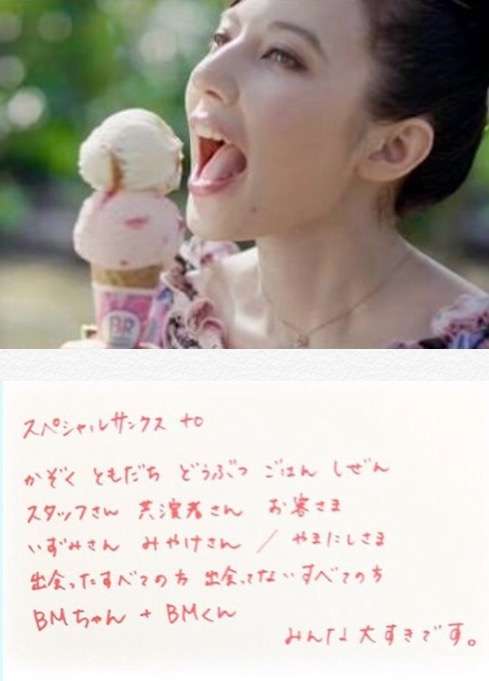 BR
スペシャルサンクス to
かぞく ともだち どうぶつ ごはん しぜん
スタッフさん 共演者さん お客さま
いずみさん みやけさん / やまにしさま
出会ったすべての方 出会ってないすべての方
BMちゃん + BMくん
みんな大すきです。